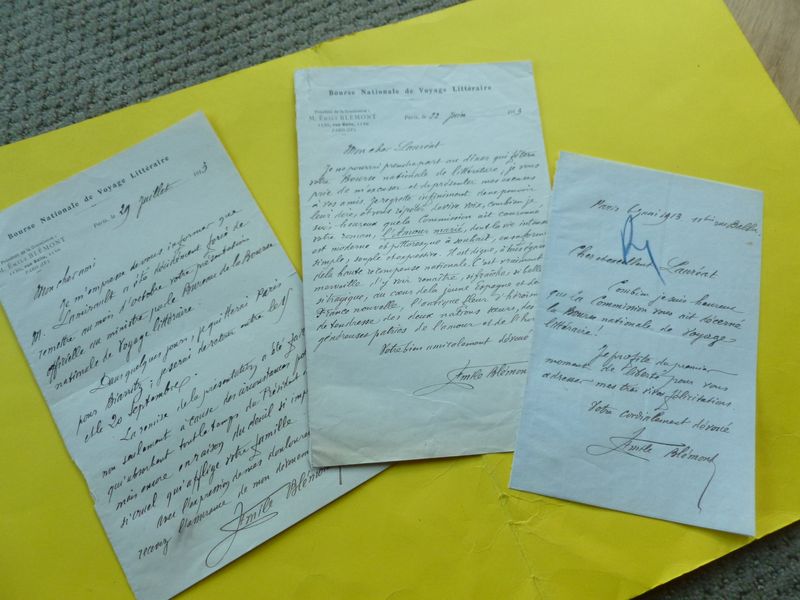 Bourse Nationale de Voyage Littéraire
Président de la Commission :
M. ÉMILE BLÉMONT
PARIS
Paris, le 29 juillet 1913
Mon cher ami
Je m'empresse de vous informer que
M. a été décidément forcé de
remettre au mois d'octobre votre présentation
officielle au ministre par la Bourse
nationale de Voyage littéraire.
Dans quelques jours, je quitterai Paris
pour Biarritz ; je serai de retour entre le 15
et le 20 septembre.
La remise de la présentation a été
non seulement à cause des circonstances
qui absorbent tout le temps du Président
mais encore en raison du deuil si
si cruel qui afflige votre famille
avec l'expression de mes
recevez l'assurance de mon
Émile Blémont
Bourse Nationale de Voyage Littéraire
Président de la Commission :
M. ÉMILE BLÉMONT
PARIS
Paris, le 22 juin 1913
Mon cher Lauréat
Je ne pourrai prendre part au dîner qui fêtera
votre Bourse nationale de littérature ; je vous
prie de m'excuser et de présenter mes excuses
à vos amis. Je regrette infiniment de ne pouvoir
leur dire, à vous répéter de vive voix, combien je
suis heureux que la Commission ait couronné
votre roman, l'Amour marié, dont la vie intense
est moderne et pittoresque à souhait, en sa forme
simple, souple et expressive. Il est digne à tous égards
de la haute récompense nationale. C'est vraiment
merveille d'y voir renaître, si fraîche, si belle
si tragique, au cœur de la jeune Espagne et de la
France nouvelle, l'antique fleur d'héroïsme
de tendresse des deux nations sœurs, des
généreuses patries de l'amour et de
Votre bien amicalement dévoué
Émile Blémont
Paris 6 juin 1913
Cher et excellent Lauréat
Combien je suis heureux
que la Commission vous ait décerné
la Bourse nationale de Voyage
littéraire !
Je profite du premier
moment de liberté pour vous
adresser mes très vives félicitations.
Votre cordialement dévoué
Émile Blémont